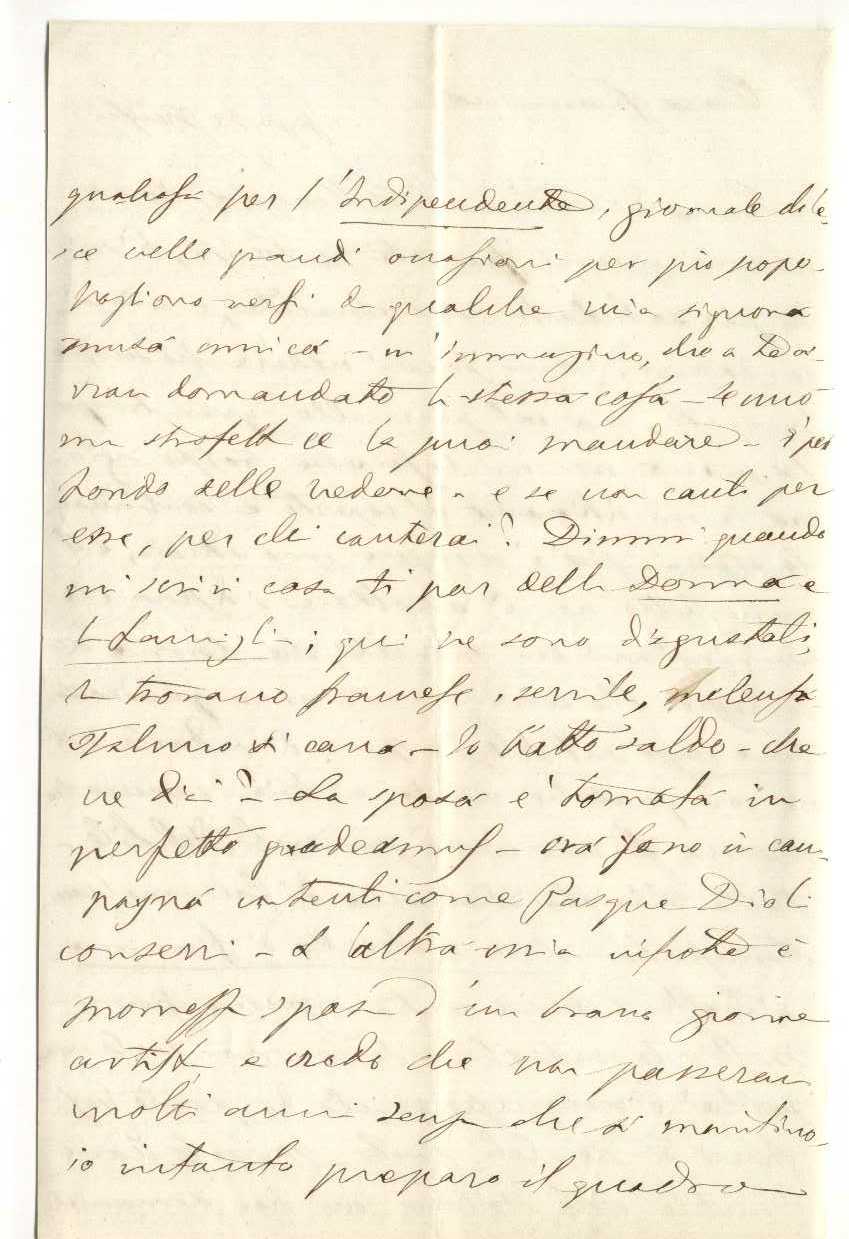 qualcosa per l'Indipendente, giornale ch'e-
sce nelle grandi occasioni per più popo
vogliono versi di qualche mia signora
musa amica – m'immagino, che a te a-
vran domandato la stessa cosa – se uno
strofetta ce la puoi mandare – è pel
fondo delle vedove – e se non canti per
esse, per chi canterai? Dimmi quando
mi scrivi cosa ti par della Donna e
la famiglia; qui ne sono disgustati,
la trovano francese, servile, melensa
Taluno si cava – Io batto saldo – che
ne dici? – La sposa è tornata in
perfetto gaudeamus – ora sono in cam-
pagna contenti come Pasque Dio li
conservi – L'altra mia nipote è
promessa sposa d'un bravo giovine
artista, e credo che non passeran
molti anni senza che si maritino –
io intanto preparo il quadro